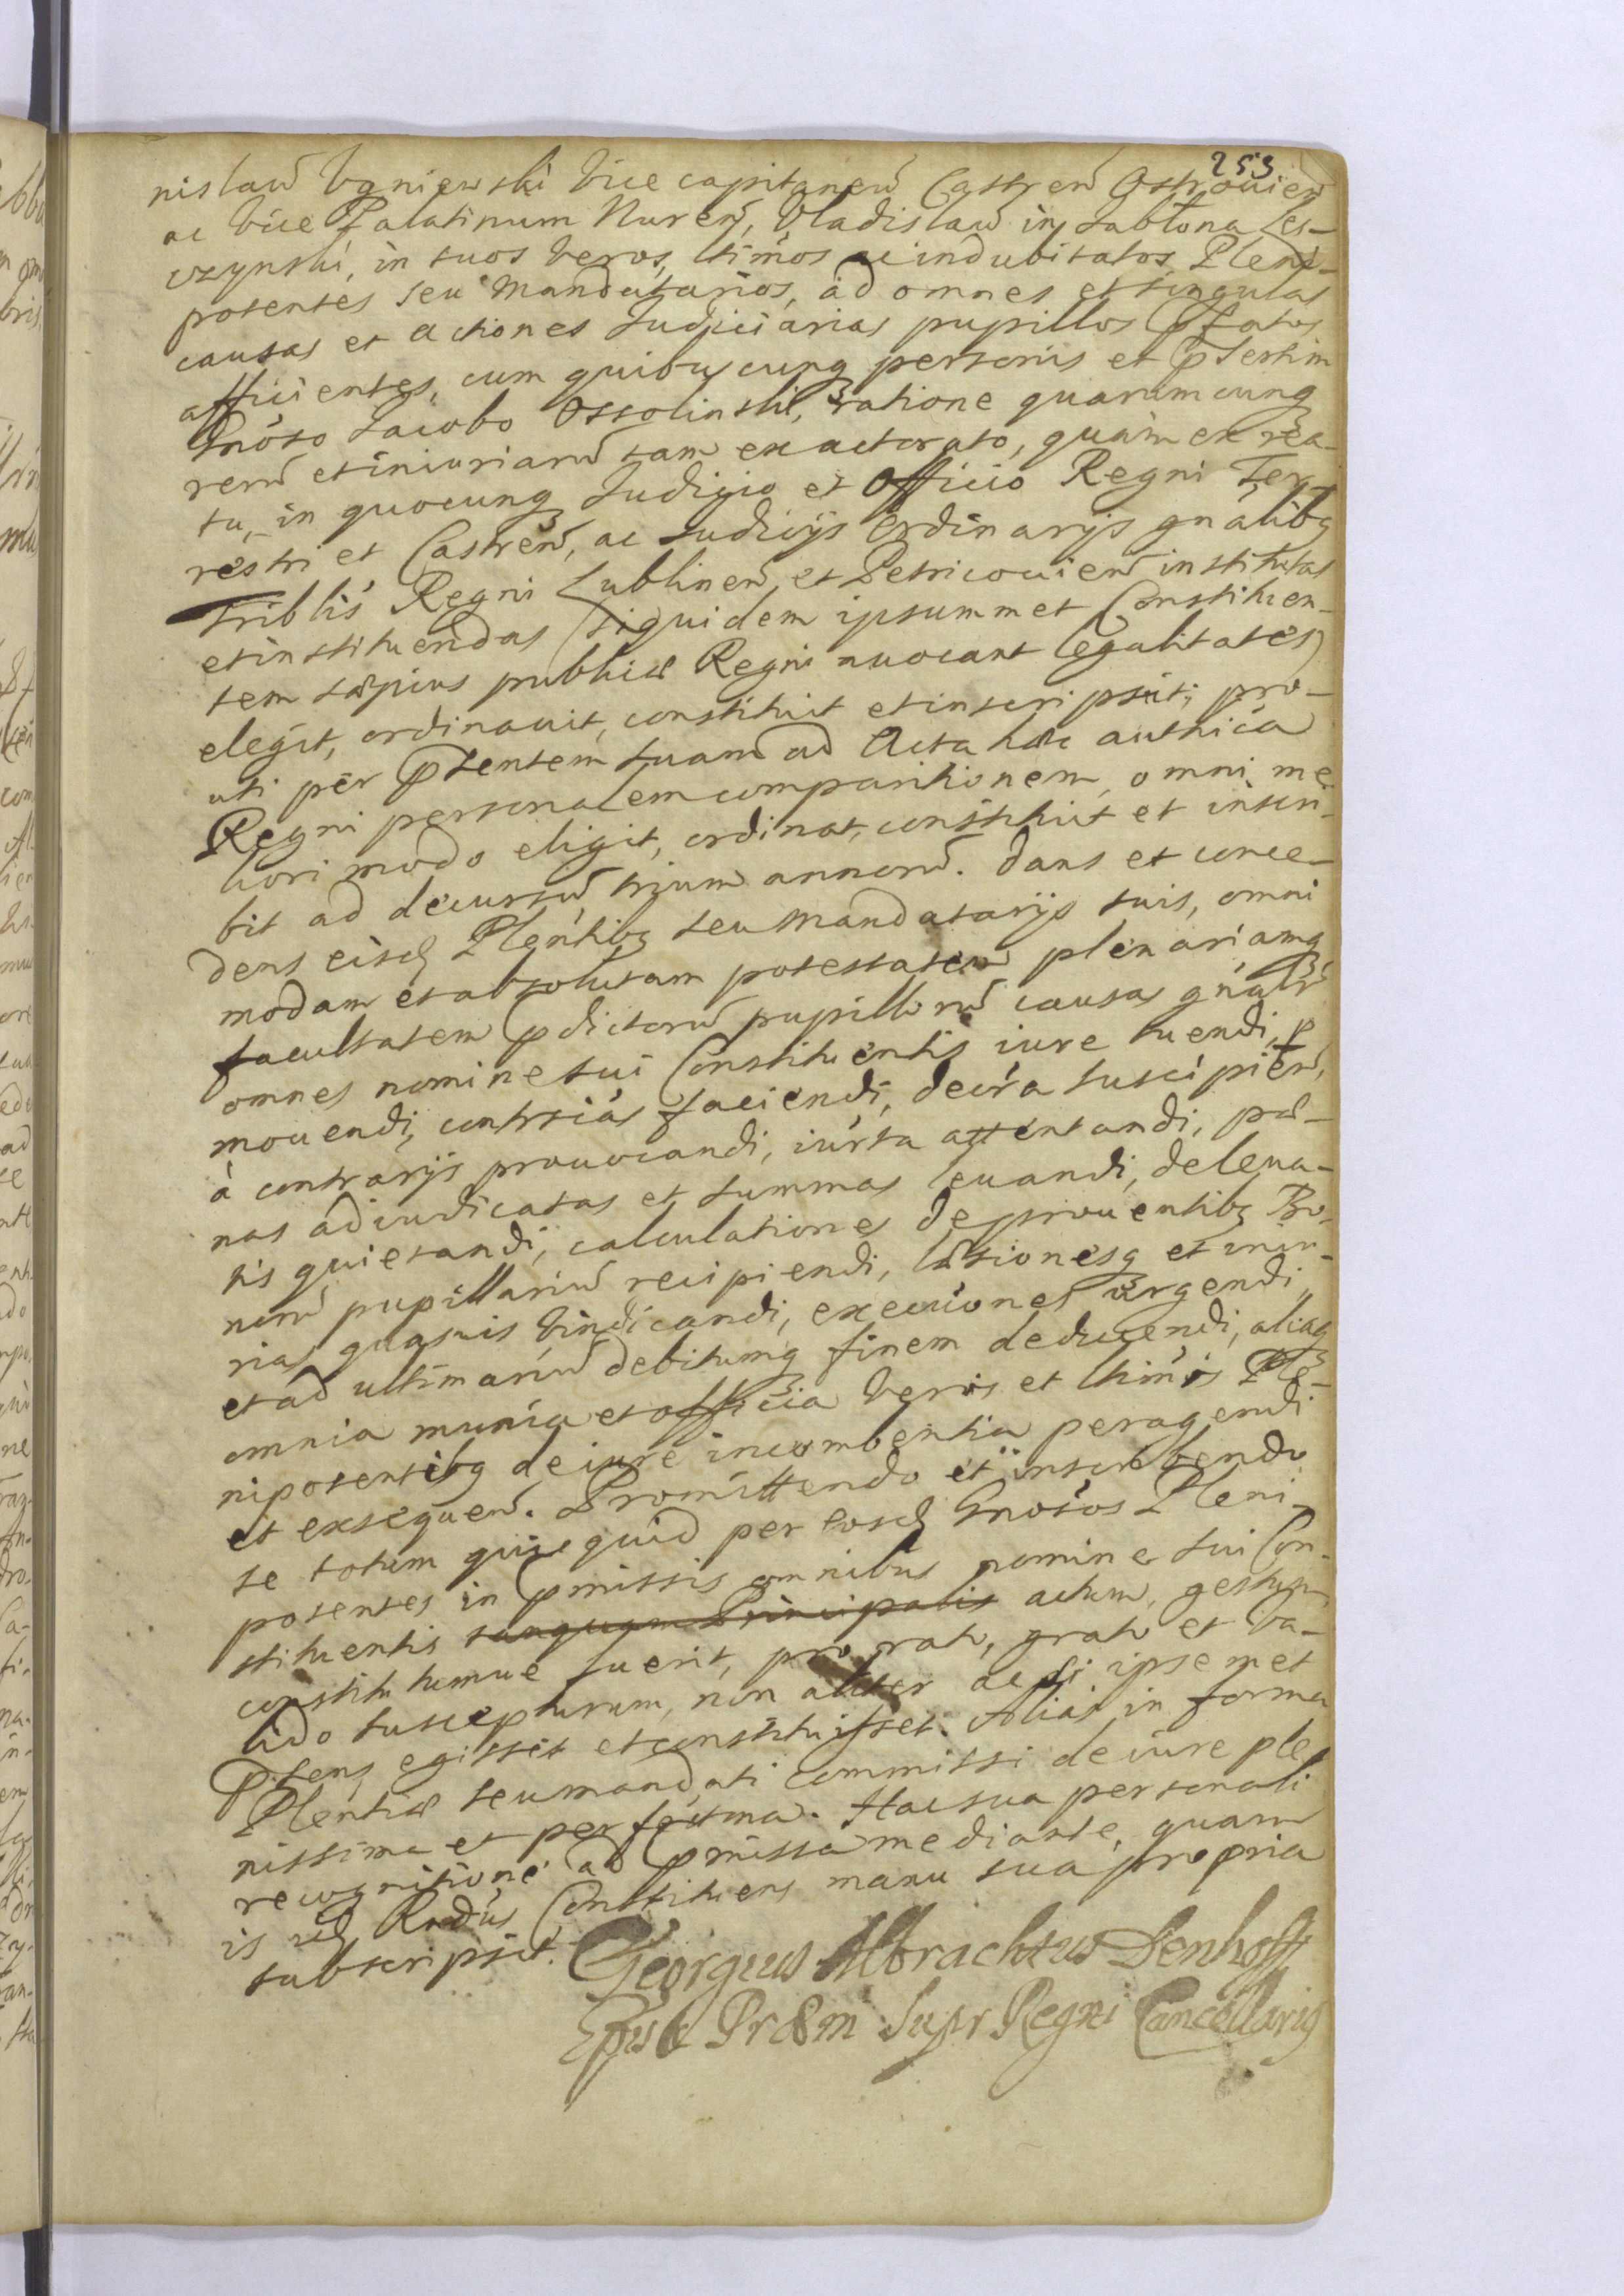 253
nisław Vgniewski Vice capitaneũ Castreñ Ostrouieñ
ac Vice Palatinum Nureñ, Vladisław in Jabłona Les-
czynski, in suos veros, ltimos ac indubitatos Pleni-
potentes seu Mandatarios, ad omnes et singulas
causas et actiones Judiciarias pupillos pfatos
afficientes, cum quibuscunq personis et psertim
Gnoso Jacobo Ossolinski, ratione quarumcunq
rerũ et iniuriarũ tam ex actorato, quàm ex rea-
tu, in quocunq Judicio et Officio Regni Ter-
restri et Castreñ, ac Judicijs Ordinarijs gnalibq
Triblis Regni Lublineñ et Petricouieñ institutas
et instituendas (siquidem ipsummet Constituen-
tem sæpius publicæ Regni auocant legalitates)
elegit, ordinauit, constituit et inscripsit; pro-
uti per psentem suam ad Acta hæc authica
Regni personalem comparitionem, omni me-
liori modo eligit, ordinat, constituit et inscri-
bit ad decursũ trium annorũ. Dans et conce-
dens eisd Plentibq seu Mandatarijs suis, omni
modam et absolutam potestatem plenariamq
facultatem pdictorũ pupillorũ causas gnalr
omnes nomine sui Constituentis iure tuendi, p
mouendi, contrcias faciendi, decra suscipieñ,
à contrarijs prouocandi, iurta attentandi, pœ-
nas adiudicatas et summas leuandi, de leua-
tis quietandi, calculationes de prouentibq Bo-
norũ pupillariũ recipiendi, læsionesq et iniu-
rias quasuis vindicandi, executiones urgendi
et ad ultimariũ debitumq finem deducendi, aliaq
omnia munia et officia veris et ltimis Ple-
nipotentibq de iure incumbentia peragendi
et exsequeñ. Promittendo et inscribendo
se totum quicquid per eosd Gnosos Pleni-
potentes in pmissis omnibus nomine sui Con-
stituentis tanquam Principalis actum, gestum,
constitutumue fuerit, pro rato, grato et va-
lido suscepturum, non aliter ac si ipsemet
psens egisset et constituisset. Alias in forma
Plentiæ seu mandati commissi de iure ple-
nissima et perfectma. Hac sua personali
recognitione ad pmissa mediante, quam
is id Rndus Constituens manu sua propria
subscripsit.
Georgius Albrachtus Denhoff
Epus Præm Supr Regni Cancellariq